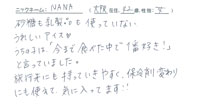 ニックネーム:NANA (大阪府 在住・52歳・性別:女)
砂糖も乳製品も使っていない
うれしいアイスや
うちの3は、「今まで食べた中で1番好き!」
と言っていました。
旅行等にも持っていきやすく、保冷剤変わり
にも使えて、気に入ってます!!